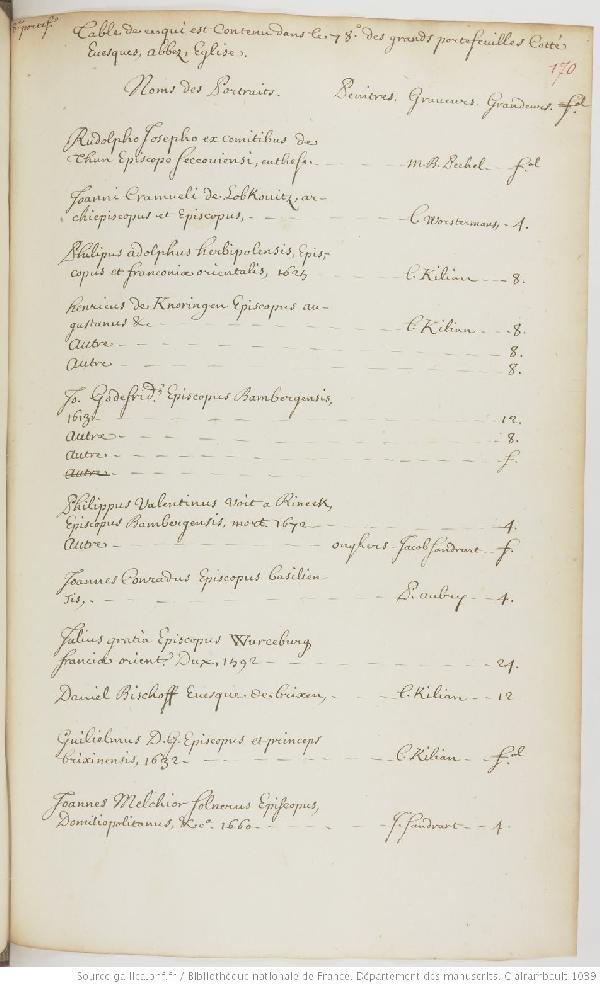 Table de ce qui est Contenu dans le 78.e des grands portefeuilles Cotté
Euesques, abbez, Eglise.
170
Noms des Portraits. Peintres. Graueurs. Grandeurs. fol
Rudolpho Josepho ex comitibus de
Thun Episcopo seccouiensi, en these - - - m. B. Pechel - fol
Joanni Caramueli de Lobkouitz, ar-
chiepiscopus et Episcopus, - - - L. Vorstermans, - 4.
Philipus adolphus herbipolensis, Epis-
copus et franconiæ orientalis, 1625 - - L. Kilian - 8.
henricus de Knoringen Episcopus au-
gustanus &c - - - L. Kilian - 8.
Autre - - - 8.
Autre - - - 8.
Jo. Godefrid.s Episcopus Bambergensis,
1613 - - - 12.
Autre - - - 8.
Autre - - - f.
Autre
Philippus Valentinus Voit a Rineck,
Episcopus Bambergensis, mort 1672 - - - 4.
Autre - - - onghers Jacob sandrart - f.
Joannes Conradus Episcopus basilien-
sis, - - - P. aubry - 4.
Julius gratia Episcopus Wurceburg
franciæ orient.s Dux, 1592 - - - 24.
Daniel Bischoff Euesque de brixen, - - L. Kilian - 12
Guilielmus D. G. Episcopus et princeps
brixinensis, 1632 - - - L. Kilian - fol
Joannes Melchior solnerus Episcopus,
Domiliopolitanus, &c.a 1660 - - - J. sandrart - 4.
Source gallica.bnf.fr / Bibliothèque nationale de France. Département des manuscrits. Clairambault 1039